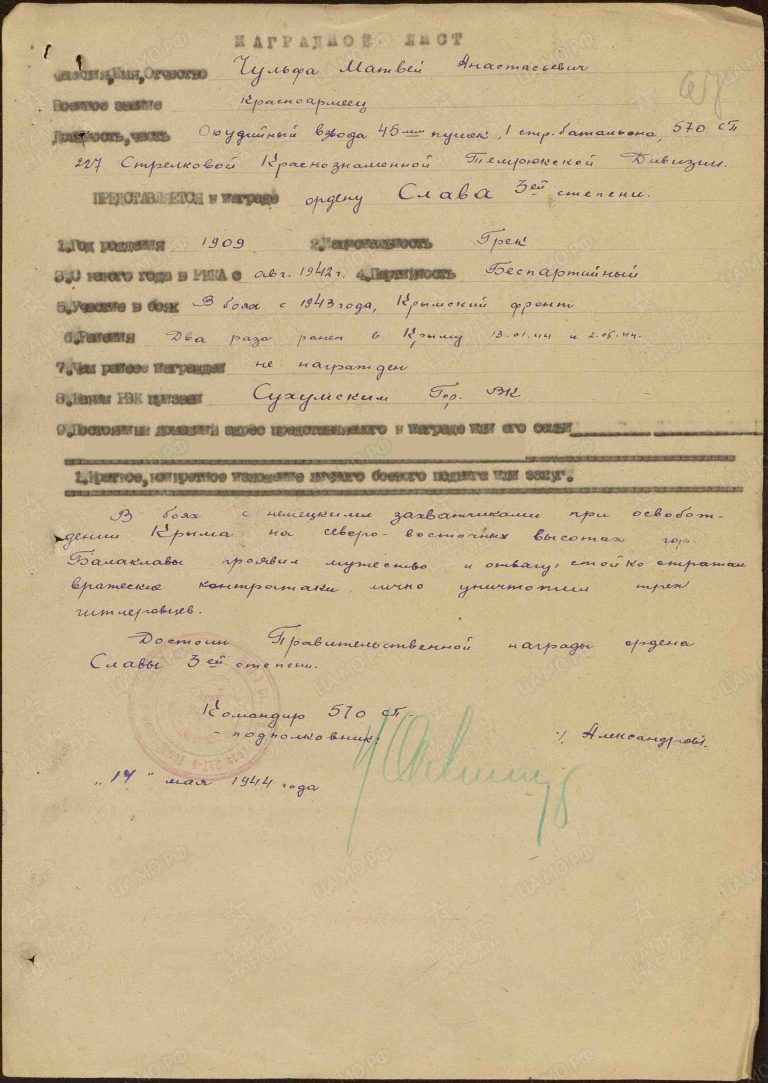 НАГРАДНОЙ ЛИСТ
Фамилия, Имя, Отчество Чульфа Матвей Анастасьевич
Военное звание Красноармеец
Должность, часть Орудийный взвода 45мм пушек, 1 стр. батальона, 570 СП
227 Стрелковой Краснознаменной Темрюкской Дивизии.
ПРЕДСТАВЛЯЕТСЯ к награде ордену Слава 3ей степени.
1. Год рождения 1909 2. Национальность Грек
3. С какого года в РККА с авг. 1942г. 4. Партийность Беспартийный
5. Участие в боях В боях с 1943 года, Крымский фронт
6. Ранения Два раза ранен в Крыму 13.01.44 и 2.05.44.
7. Чем ранее награжден не награжден
8. Каким РВК призван Сухумским Гор. ВК
9. Постоянный домашний адрес представляемого к награде или его семьи
1. Краткое, конкретное изложение личного боевого подвига или заслуг.
В боях с немецкими захватчиками при освобож-
дении Крыма на северо-восточных высотах гор.
Балаклавы проявил мужество и отвагу, стойко отражал
вражеские контратаки, лично уничтожил трех
гитлеровцев.
Достоин Правительственной награды ордена
Славы 3ей степени.
Командир 570 СП
- подполковник:
/Александров/.
"17" мая 1944 года
ЦАМО.РФ
ПАМЯТЬ НАРОДА